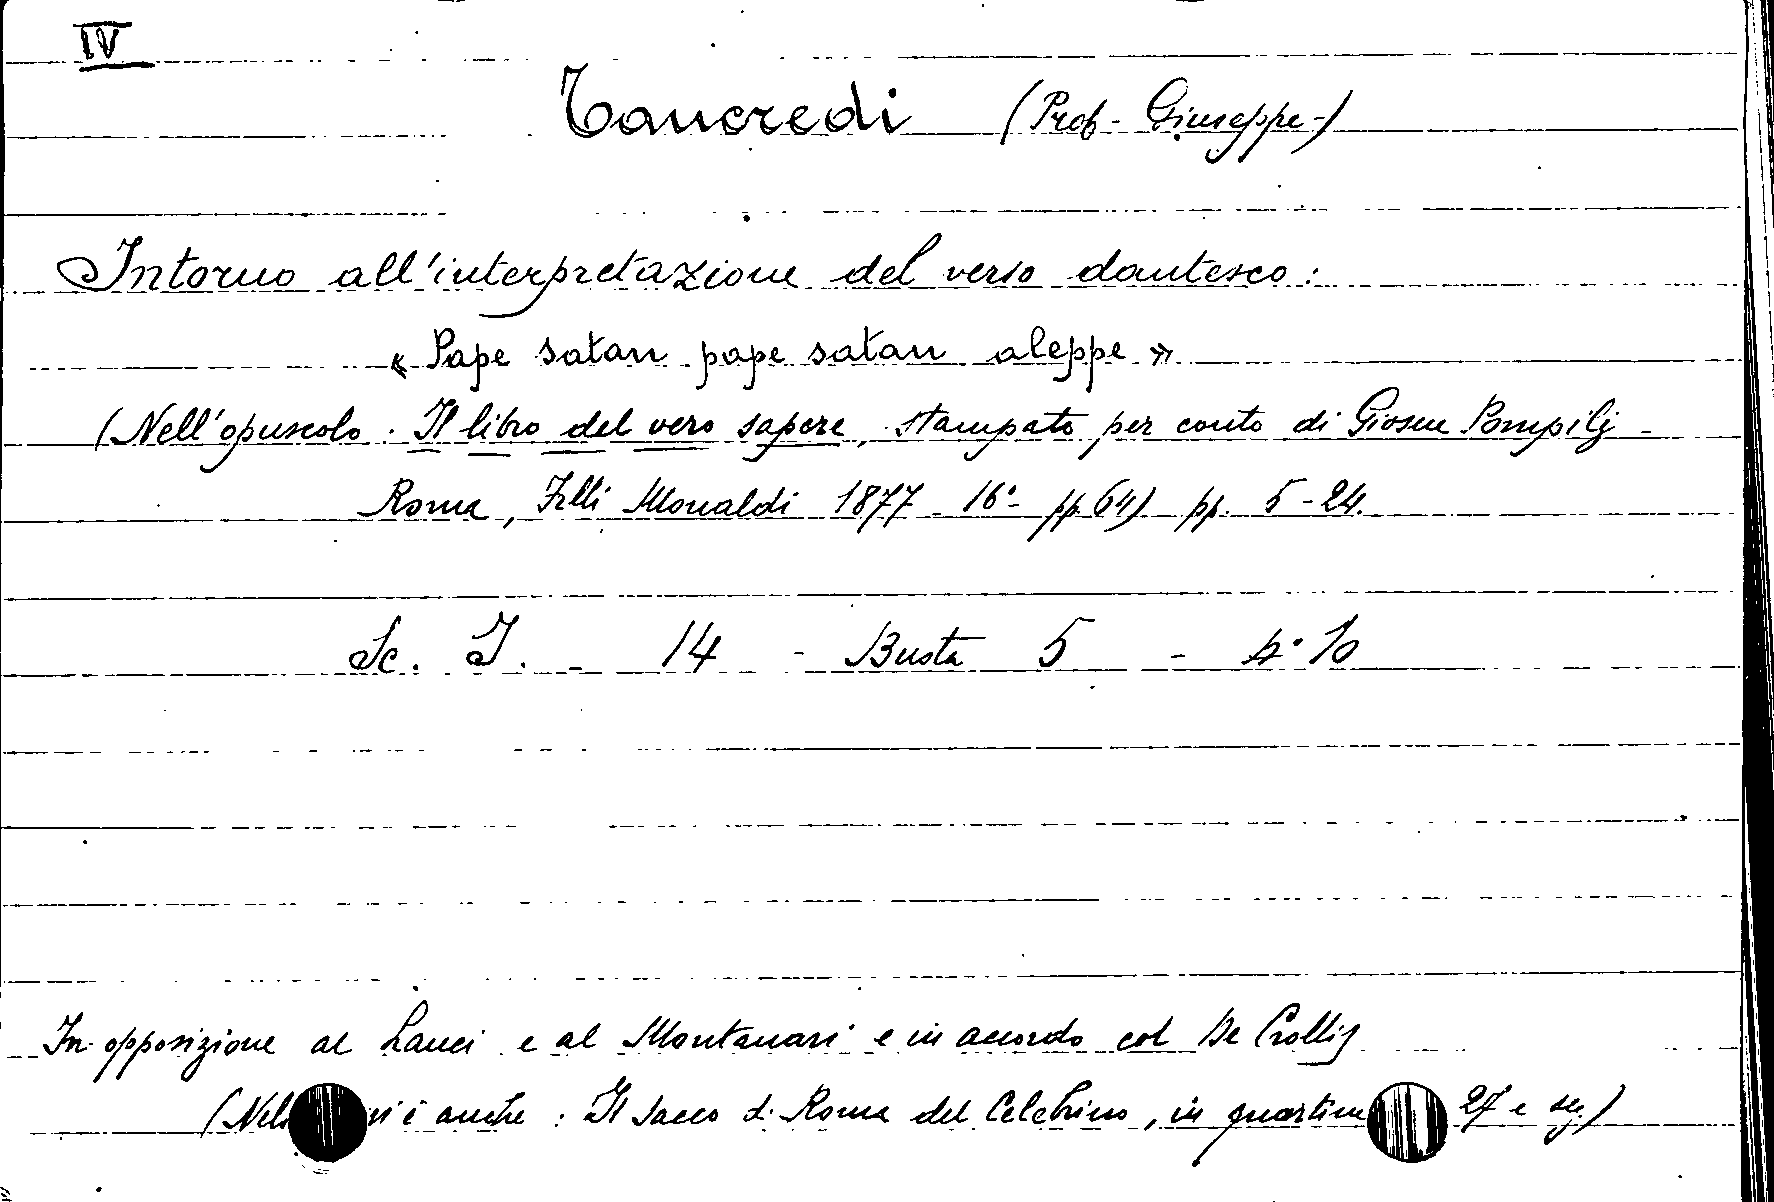 IV
Tancredi (Prof. Giuseppe-)
Intorno all'interpretazione del verso dantesco:
« Pape satan pape satan aleppe »
(Nell'opuscolo. Il libro del vero sapere, stampato per conto di Giosue Pompilj -
Roma, Flli Monaldi 1877 - 16° pp. 64) pp. 5-24.
Sc. I. - 14 - Busta 5 - n° 10
In opposizione al Lanci e al Montanari e in accordo col De Crollis
(Nell' vi è anche: Il Sacco di Roma del Celebrino, in quartine 27 e sg.)